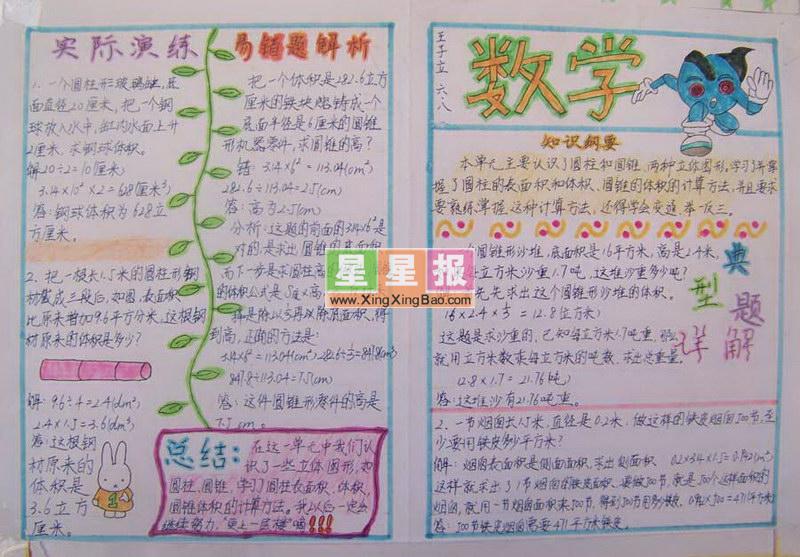 实际演练
1、一个圆柱形玻璃缸,底
面直径20厘米,把一个钢
球放入水中,缸内水面上升
2厘米,求钢球体积。
解20÷2=10(厘米)
3.14×10²×2=628(厘米³)
答:钢球体积为628立
方厘米。
2、把一根长1.5米的圆柱形钢
材截成三段后,如图,表面积
比原来增加9.6平方分米,这根钢
材原来的体积是多少?
解:9.6÷4=2.4(dm²)
2.4×1.5=3.6(dm³)
答:这根钢
材原来的
体积是
3.6立方
厘米。
易错题解析
把一个体积是282.6立方
厘米的铁块熔铸成一个
底面半径是6厘米的圆锥
形机器零件,求圆锥的高?
错:3.14×6²=113.04(cm²)
282.6÷113.04=2.5(cm)
答:高为2.5(cm)
分析:这题的前面的3.14×6²是
对的是求出圆锥的底面积
而下一步是求圆柱高的
的体积公式是
得
到高,正确的方法是:
3.14×6²=113.04(cm²)
答:这件圆锥形零件的高是
7.5cm。
总结:
在这一单元中我们认
识了一些立体图形,如
圆柱,圆锥,学习了圆柱表面积,体积,
圆锥体积的计算方法。我以后一定会
继续努力,“更上一层楼”哦!!!
王子立 六.八
数学
知识纲要
本单元主要认识了圆柱和圆锥,两种立体图形,学习了并掌
握了圆柱的表面积和体积、圆锥的体积的计算方法,并且要求
要熟练掌握这种计算方法,还得学会变通,举一反三。
典型题详解
个圆锥形沙堆,底面积是16平方米,高是2.4米,
立方米沙重1.7吨,这堆沙重多少吨?
先求出这个圆锥形沙堆的体积。
16×2.4×⅓=12.8(立方米)
这题是求沙重的,已知每立方米1.7吨重,
就用立方米数乘每立方米的吨数,求出总重量。
12.8×1.7=21.76(吨)
答:这堆沙有21.76吨重。
2、一节烟囱长1.5米,直径是0.2米,做这样的铁皮烟囱500节,至
少要用铁皮多少平方米?
解:烟囱表面积是侧面面积,求出侧面积
这样就求出了1节烟囱的铁皮面积,要做500节,就是500个这样面积的
烟囱,就用一节烟囱面积乘500节,
答:500节铁皮烟囱需要471平方米铁皮。
星星报
www.XingXingBao.com